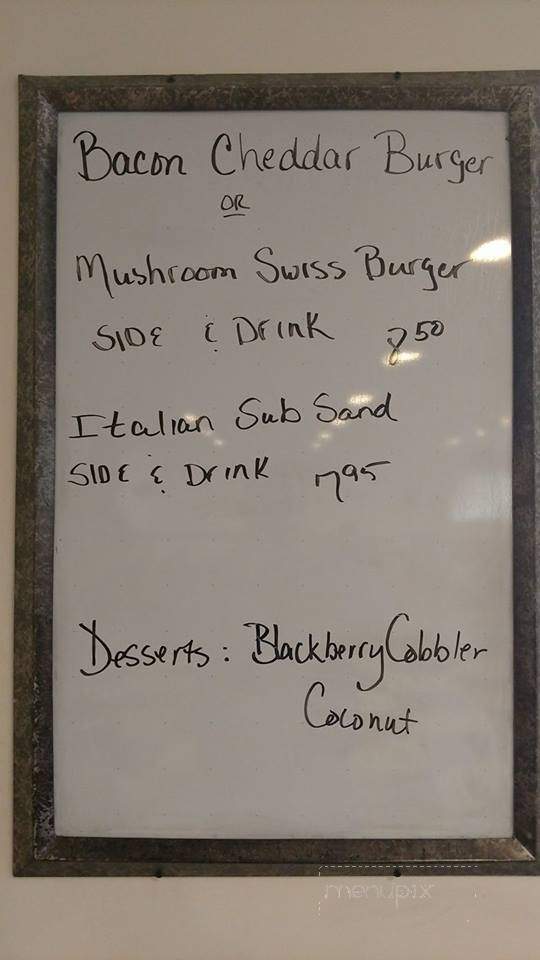 Bacon Cheddar Burger
OR
Mushroom Swiss Burger
SIDE & Drink 8 50
Italian Sub Sand
SIDE & Drink 7 95
Desserts: Blackberry Cobbler
Coconut
menupix